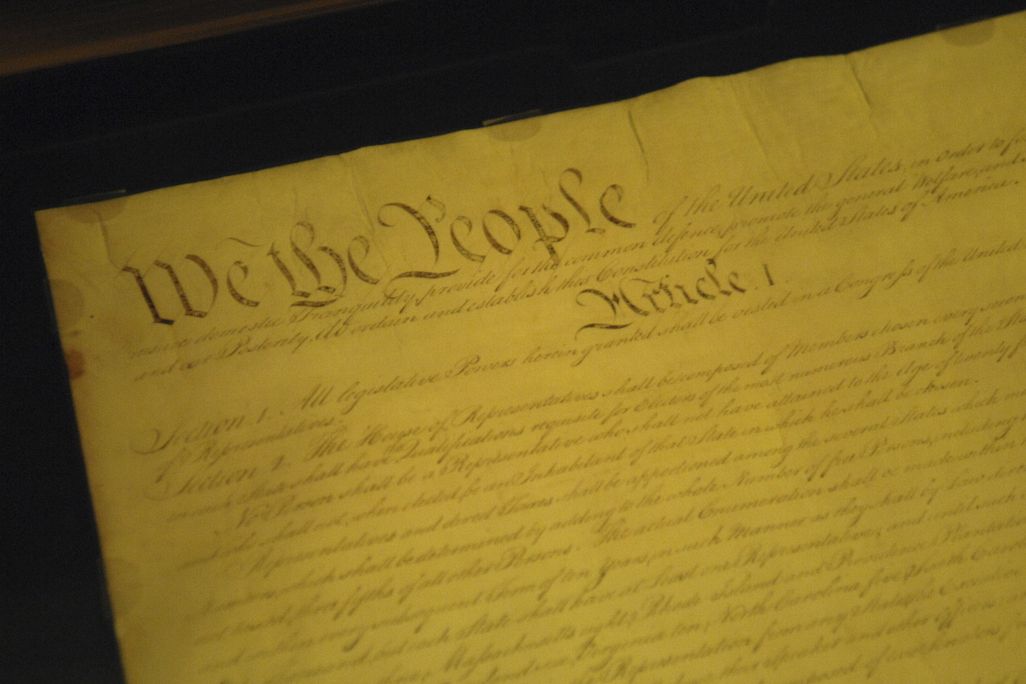 We the People of the United States, in Order to
insure domestic Tranquility, provide for the common defence, promote the general Welfare, and
and our Posterity, do ordain and establish this Constitution for the United States of America.
Article. I.
Section. 1. All legislative Powers herein granted shall be vested in a Congress of the United
of Representatives.
Section. 2. The House of Representatives shall be composed of Members chosen every
in each State shall have the Qualifications requisite for Electors of the most numerous Branch of the State
No Person shall be a Representative who shall not have attained to the Age of twenty
shall not, when elected, be an Inhabitant of that State in which he shall be chosen.
Representatives and direct Taxes shall be apportioned among the several States which
Numbers, which shall be determined by adding to the whole Number of free Persons, including
three fifths of all other Persons. The actual Enumeration shall be made within
and within every subsequent Term of ten Years, in such Manner as they shall by Law direct.
Thousand, but each State shall have at Least one Representative; and until such
Massachusetts eight, Rhode Island and Providence Plantations
Virginia ten, North Carolina five, South
Representation from any State, the Executive
their Speaker and other Officers
composed of two Senators